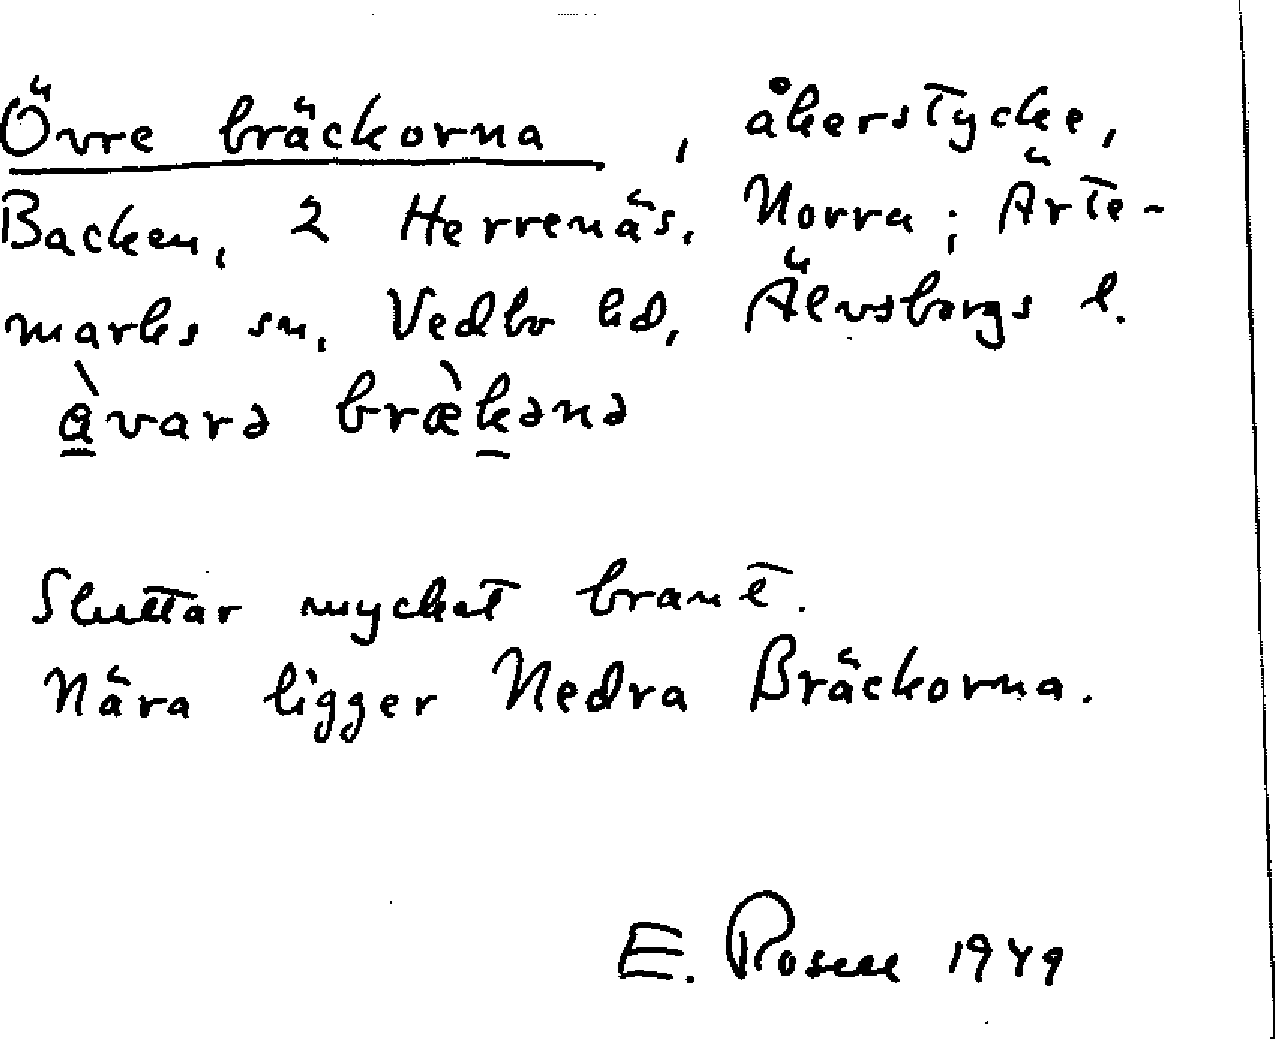 Övre bräckorna, åkerstycke,
Backen, 2 Herrenäs, Norra; Ärte-
marks sn, Vedbo hd, Älvsborgs l.
å̀varə bræ̀kənə
Sluttar mycket brant.
Nära ligger Nedra Bräckorna.
E. Rosell 1949